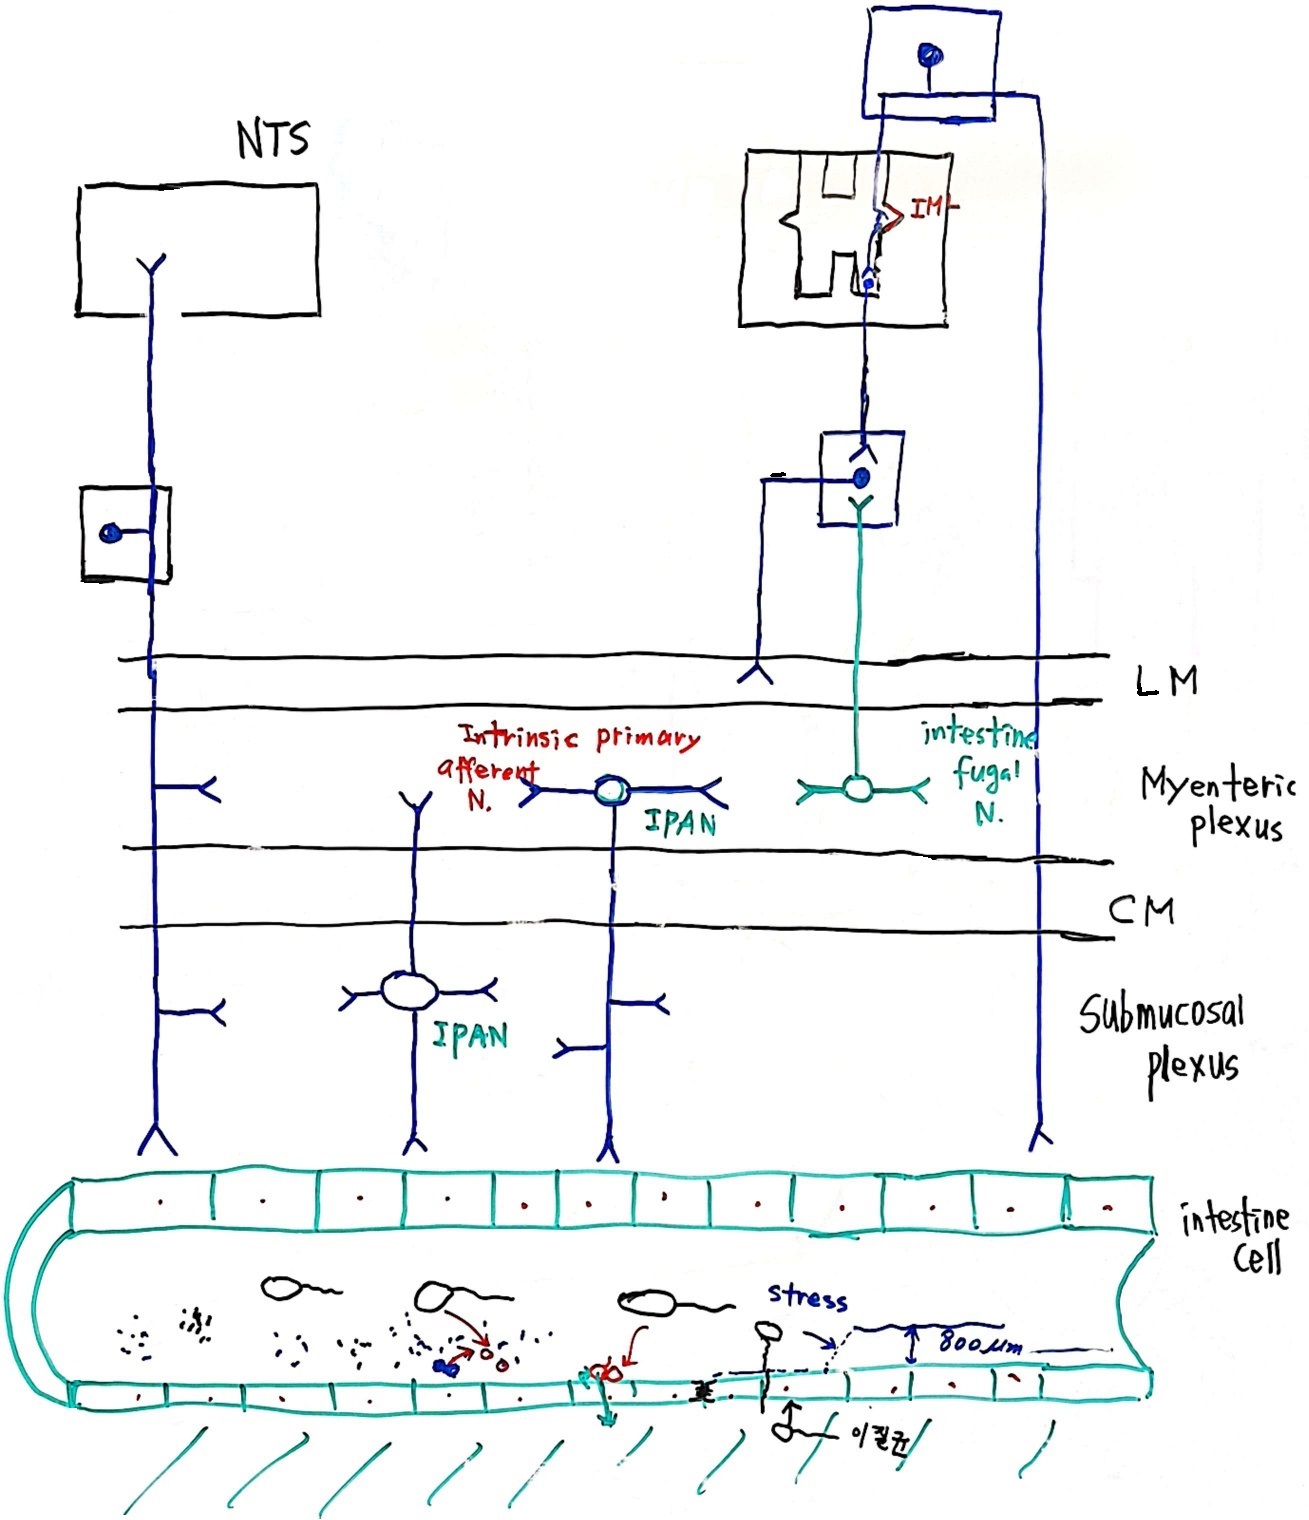 NTS
IML
LM
Intrinsic primary
afferent
N.
IPAN
intestine
fugal
N.
Myenteric
plexus
CM
IPAN
Submucosal
plexus
intestine
cell
stress
800μm
이질균